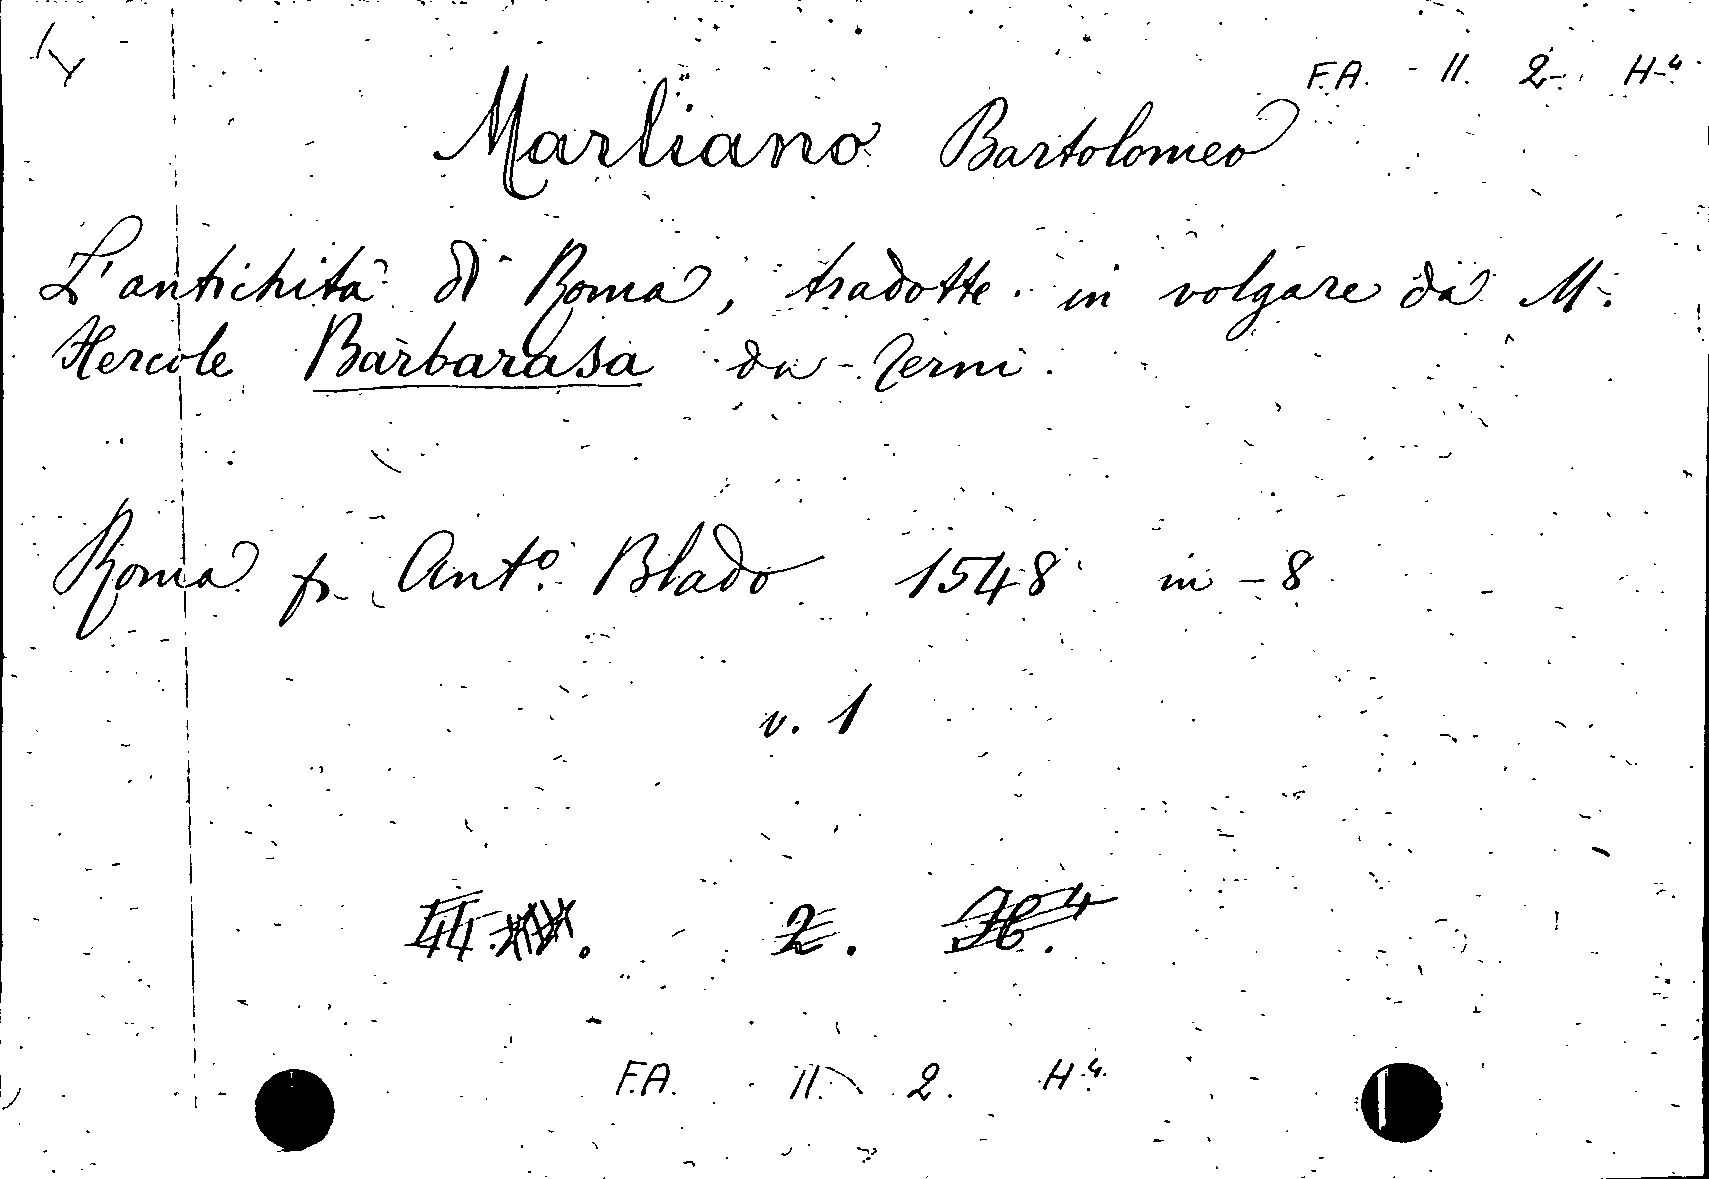 F.A. II. 2. H⁴
Marliano Bartolomeo
L'antichità di Roma, tradotte in volgare da M.
Hercole Barbarasa da Terni.
Roma Antº. Blado 1548 in-8
v. 1
2. H.4
F.A. II. 2. H⁴